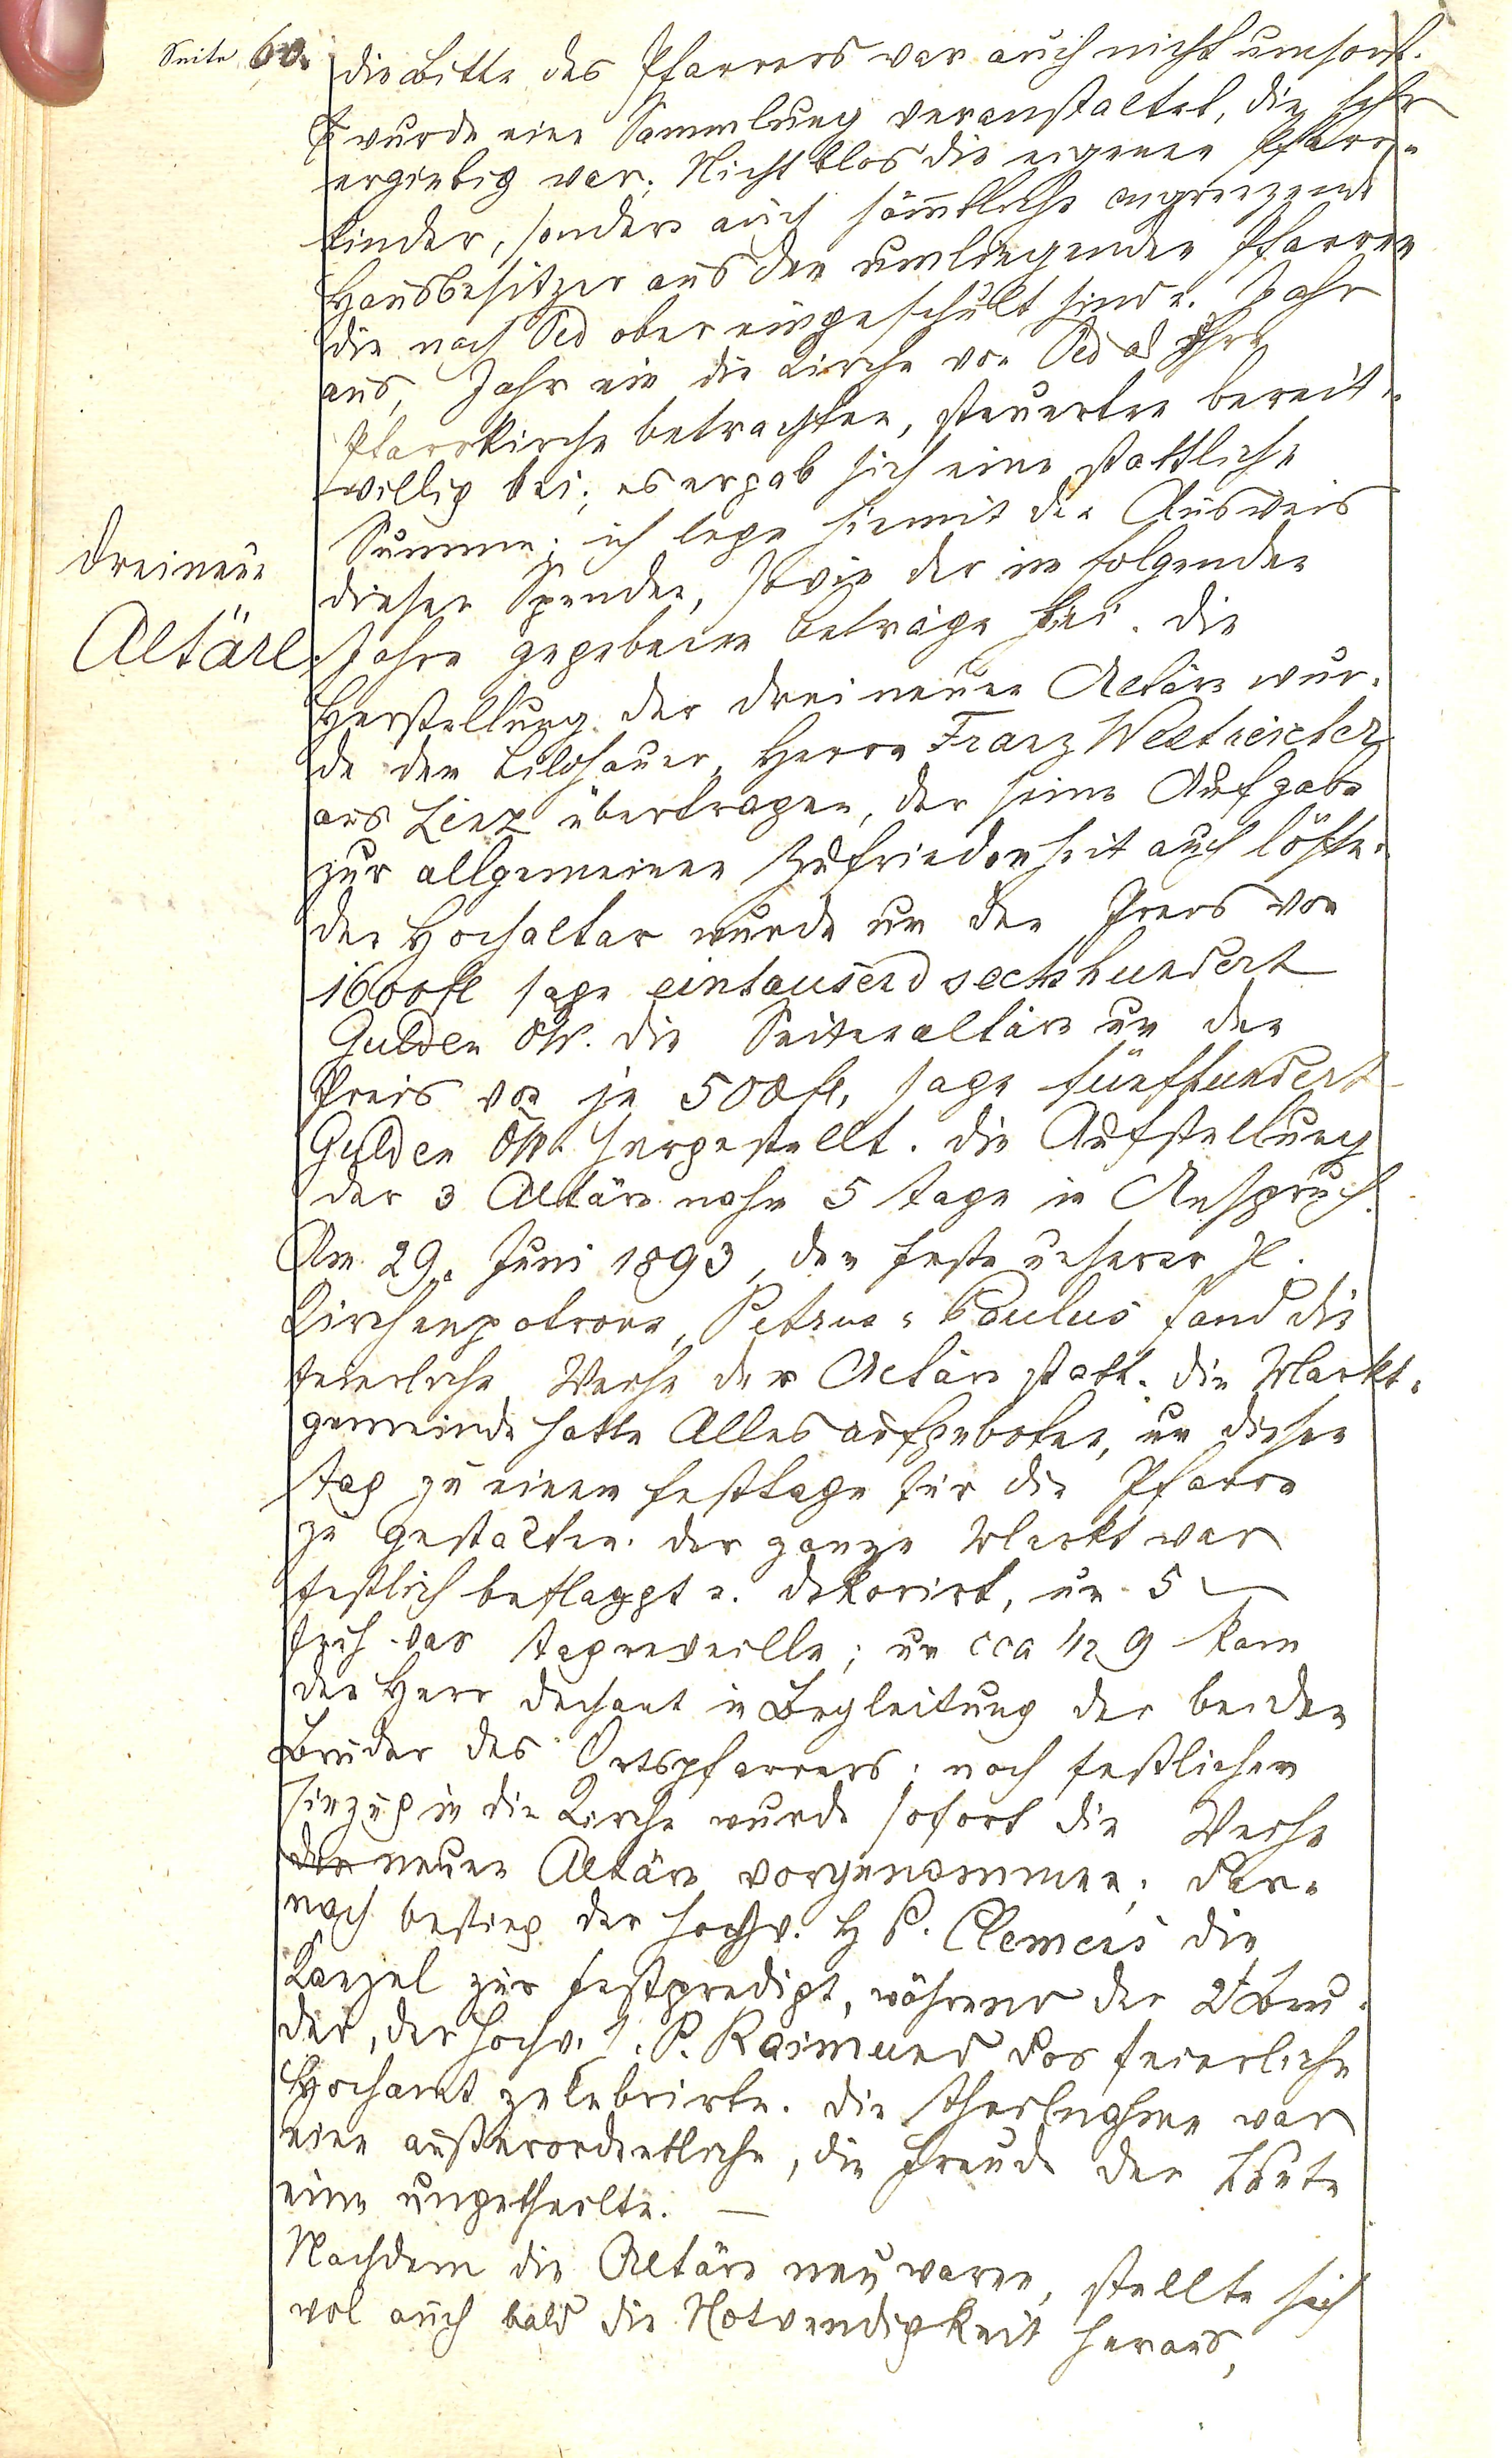 Seite 60.
die Bitte des Pfarrers war auch nicht umsonst.
Es wurde eine Sammlung veranstaltet, die sehr
ergiebig war; Nicht blos die eigenen Pfarr-
kinder, sondern auch sämtliche angrenzende
Hausbesitzer aus den umliegenden Pfarren
die nach Oed aber eingeschult sind u. Jahr
aus, Jahr ein die Kirche von Oed als ihre
Pfarrkirche betrachten, steuerten bereit-
willig bei; es ergab sich eine stattliche
Summe; ich lege hiemit den Ausweis
dieser Spenden, sowie der im folgenden
Jahre gegebenen Beträge bei. Die
Drei neue
Altäre.
Herstellung der drei neuen Altäre wur-
de dem Bildhauer, Herrn Franz
aus Linz übertragen, der seine Aufgabe
zur allgemeinen Zufriedenheit auch löste.
Der Hochaltar wurde um den Preis von
1600 fl sage eintausend sechshundert
Gulden ÖW. die Seitenaltäre um den
Preis von je 500 fl, sage fünfhundert
Gulden ÖW. hergestellt. Die Aufstellung
der 3 Altäre nahm 5 Tage in Anspruch.
Am 29. Juni 1893, dem Feste unserer hl.
Kirchenpatrone, Petrus = Paulus fand die
feierliche Weihe der Altäre statt. Die Markt-
gemeinde hatte Alles aufgeboten, um diesen
Tag zu einem Festtage für die Pfarre
zu gestalten. Der ganze Markt war
festlich beflaggt u. dekorirt, um 5
früh war Tagreveille; um cca 1/2 9 kam
der Herr Dechant in Begleitung der beiden
Brüder des Ortspfarrers; nach festlichem
Einzug in die Kirche wurde sofort die Weihe
der neuen Altäre vorgenommen; dar-
nach bestieg der hochw. H P. Clemens die
Kanzel zur Festpredigt, während der 2te Bru-
der, der hochw. H. P. Raimund das feierliche
Hochamt zelebrirte. Die Theilnahme war
eine außerordentliche, die Freude der Leute
eine ungetheilte. —
Nachdem die Altäre neu waren, stellte sich
wol auch bald die Notwendigkeit heraus,